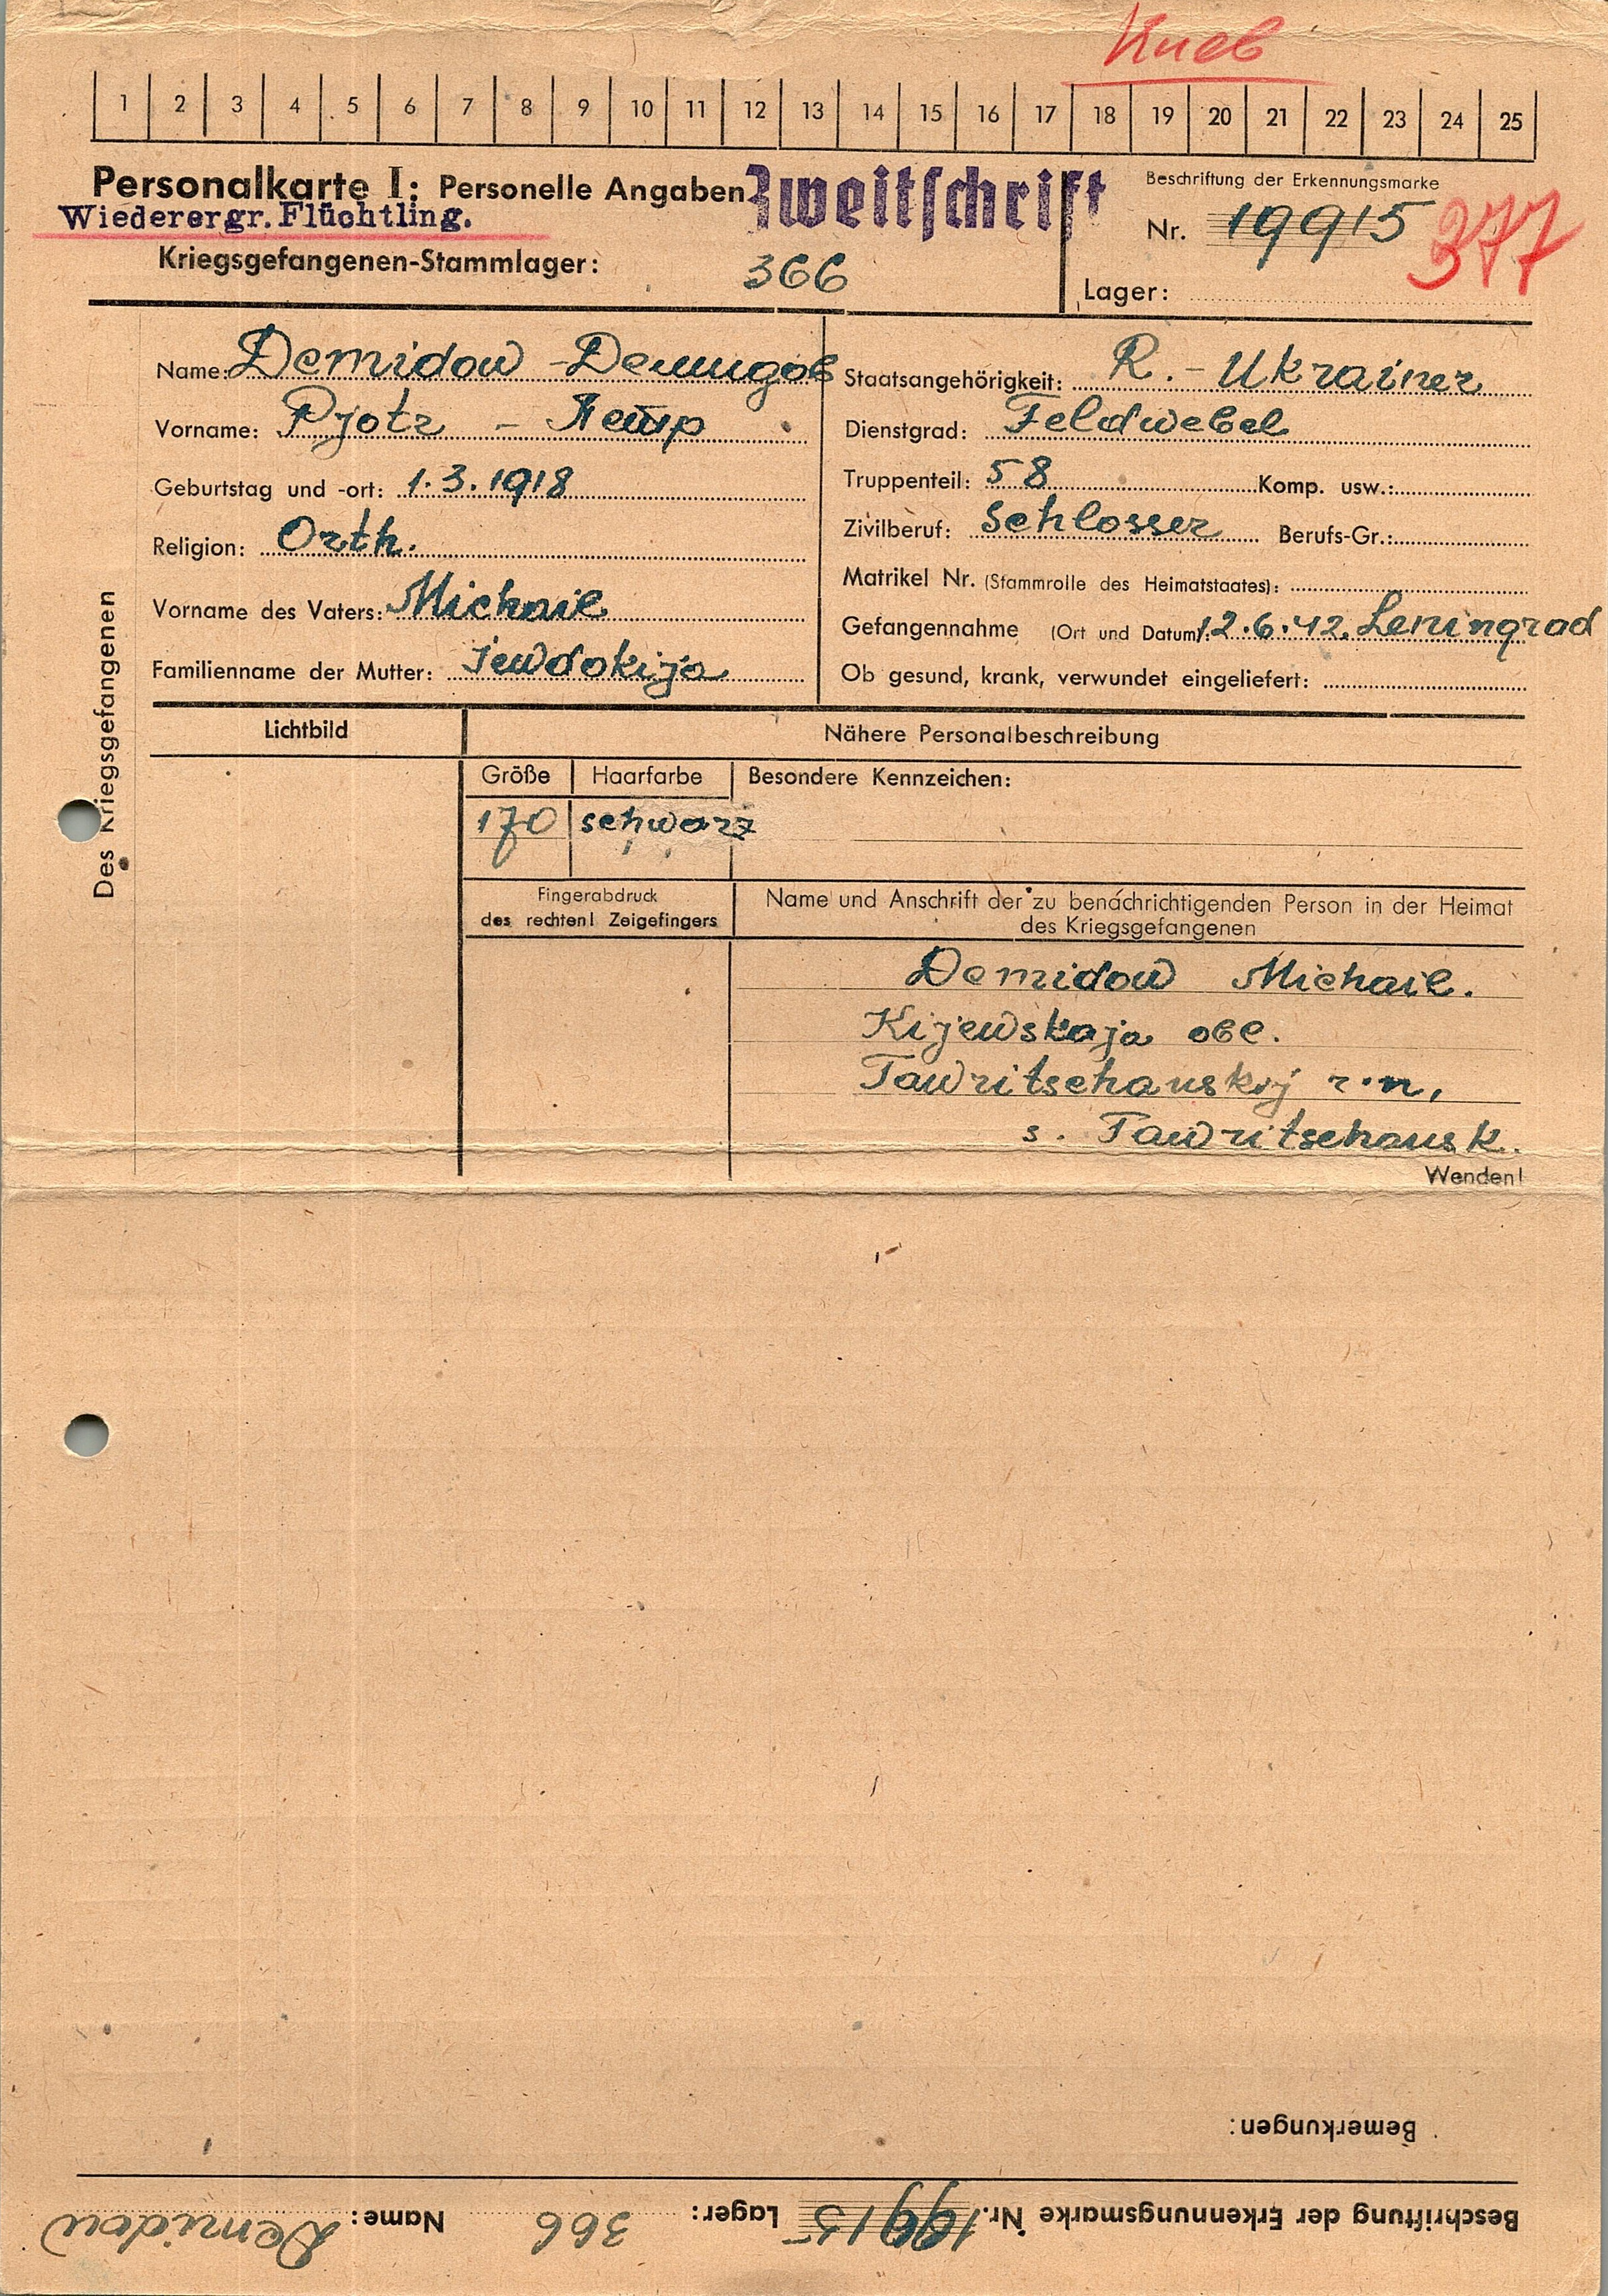 Киев
1 2 3 4 5 6 7 8 9 10 11 12 13 14 15 16 17 18 19 20 21 22 23 24 25
Personalkarte I: Personelle Angaben
Zweitschrift
Wiederergr. Flüchtling.
Kriegsgefangenen-Stammlager: 366
Beschriftung der Erkennungsmarke
Nr. 19915
377
Lager:
Des Kriegsgefangenen
Name: Demidow - Демидов
Vorname: Pjotr - Петр
Geburtstag und -ort: 1.3.1918
Religion: Orth.
Vorname des Vaters: Michail
Familienname der Mutter: Jewdokija
Staatsangehörigkeit: R. - Ukrainer
Dienstgrad: Feldwebel
Truppenteil: 58 Komp. usw.:
Zivilberuf: Schlosser Berufs-Gr.:
Matrikel Nr. (Stammrolle des Heimatstaates):
Gefangennahme (Ort und Datum): 12.6.42. Leningrad
Ob gesund, krank, verwundet eingeliefert:
Lichtbild
Nähere Personalbeschreibung
Größe Haarfarbe Besondere Kennzeichen:
170 schwarz
Fingerabdruck
des rechten! Zeigefingers
Name und Anschrift der zu benachrichtigenden Person in der Heimat
des Kriegsgefangenen
Demidow Michail.
Kijewskaja obl.
Tawritschanskij r.n,
s. Tawritschansk.
Wenden!
Bemerkungen:
Beschriftung der Erkennungsmarke Nr. 19915 Lager: 366 Name: Demidow